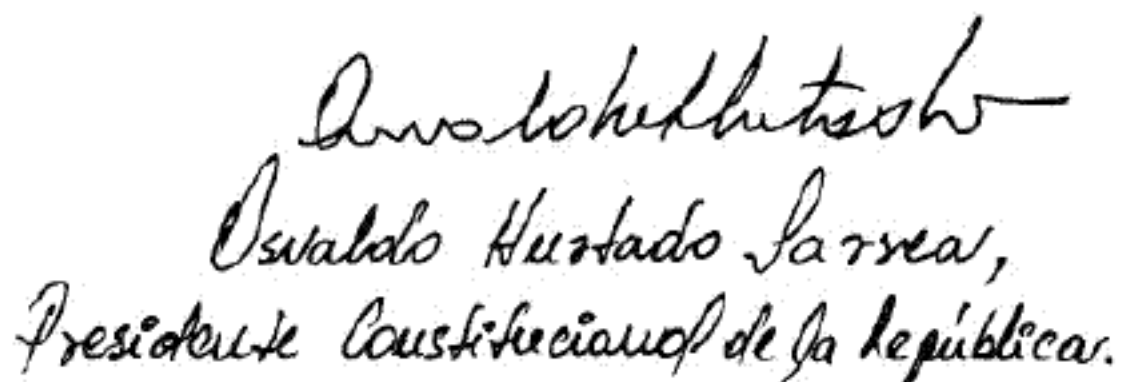 Osvaldo Hurtado
Osvaldo Hurtado Larrea,
Presidente Constitucional de la República.